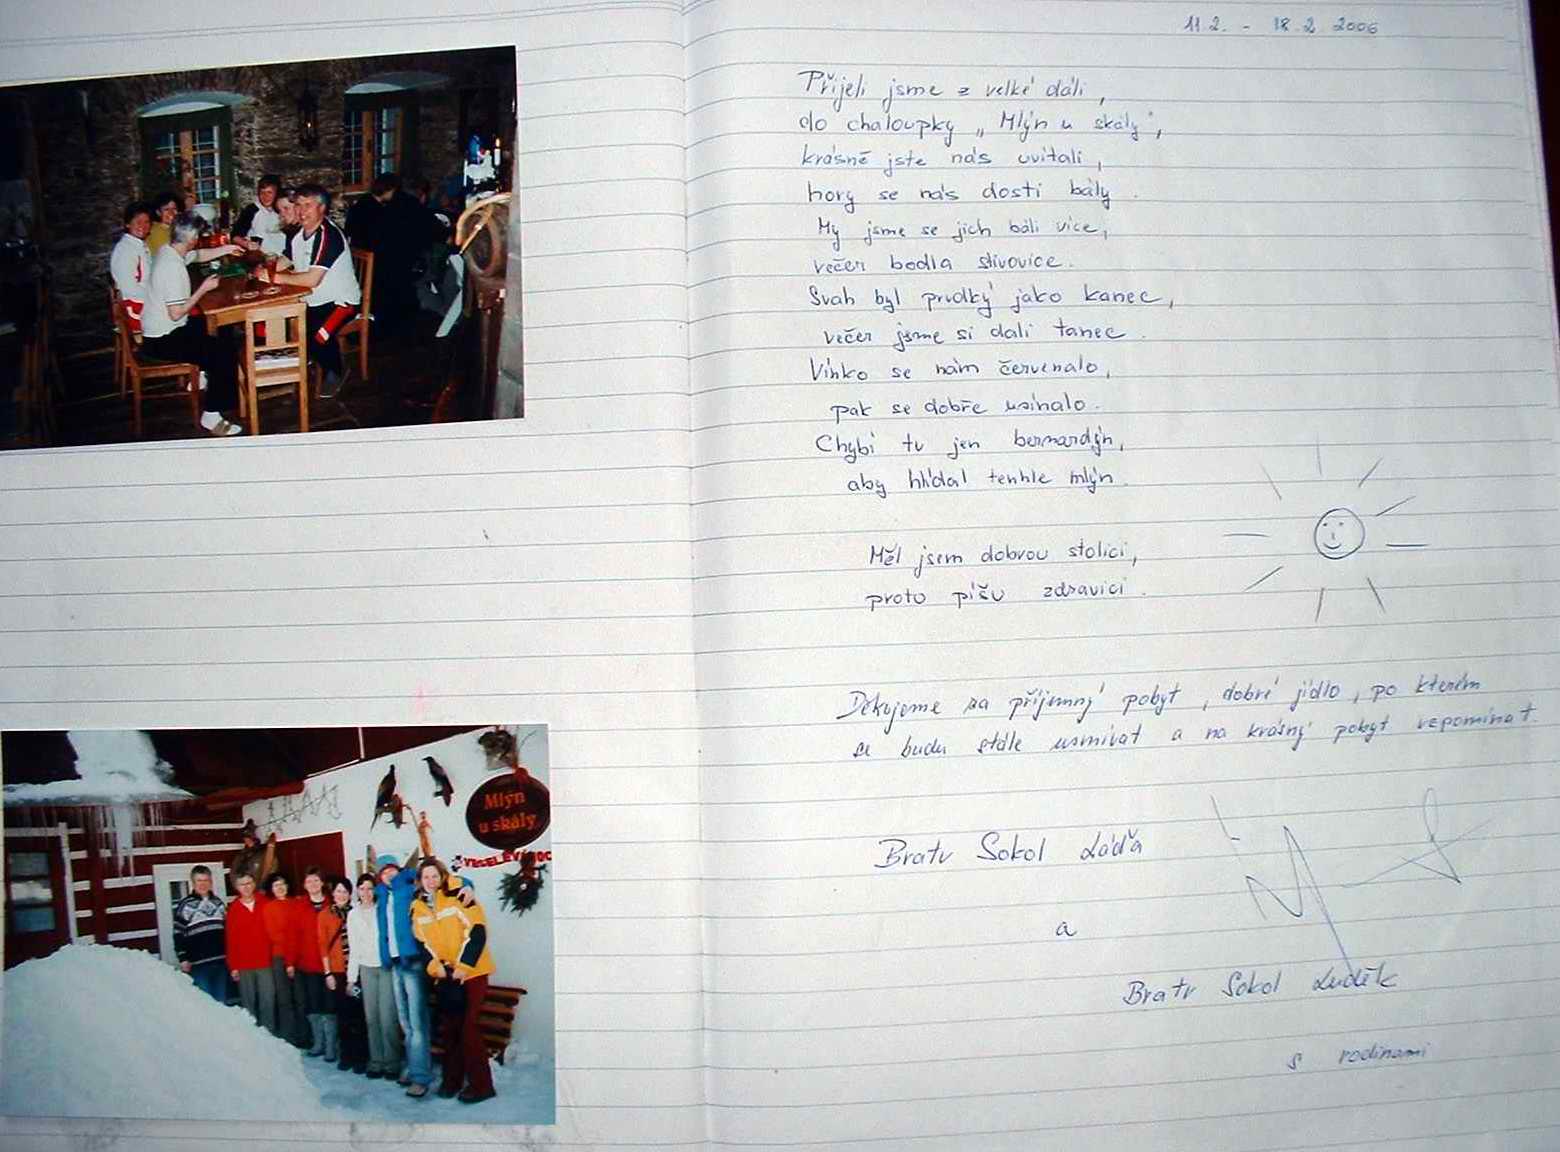 11.2. - 18.2. 2006
Přijeli jsme z velké dáli,
do chaloupky „Mlýn u skály",
krásně jste nás uvítali,
hory se nás dosti bály.
My jsme se jich báli více,
večer bodla slivovice.
Svah byl prudký jako kanec,
večer jsme si dali tanec.
Vínko se nám červenalo,
pak se dobře usínalo.
Chybí tu jen bernardýn,
aby hlídal tenhle mlýn.
Měl jsem dobrou stolici,
proto píšu zdravici.
Děkujeme za příjemný pobyt, dobré jídlo, po kterém
se budu stále usmívat a na krásný pobyt vzpomínat.
Bratr Sokol Láďa
a
Bratr Sokol Luděk
s rodinami
Mlýn
u skály
VESELÉ VÁNOC